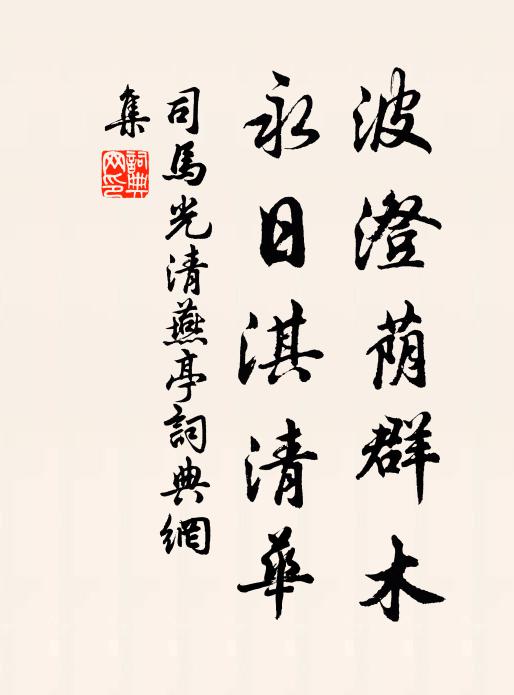 波澄荫群木
永日淇清華
司馬光清燕亭詞典網
集
詞典
网印